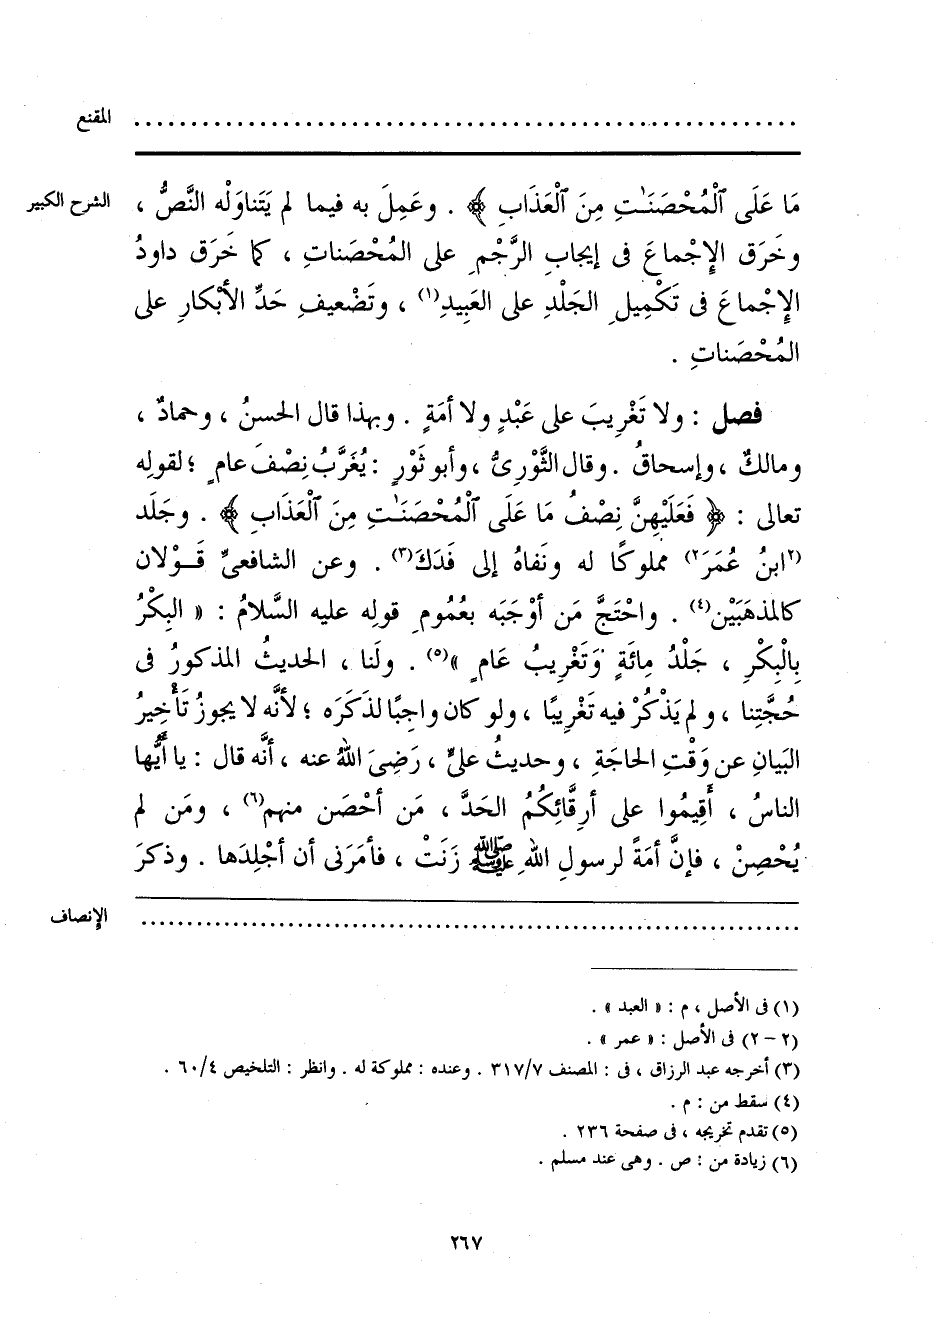 المقنع ............................................................
الشرح الكبير
مَا عَلَى ٱلْمُحْصَنَٰتِ مِنَ ٱلْعَذَابِ ﴾ . وعَمِلَ به فيما لم يَتَناوَلْه النَّصُّ ،
وخَرَق الإِجْماعَ فى إيجابِ الرَّجْمِ على المُحْصَناتِ ، كما خَرَق داودُ
الإِجْماعَ فى تَكْمِيلِ الجَلْدِ على العَبِيدِ(١) ، وتَضْعيفِ حَدِّ الأبْكارِ على
المُحْصَناتِ .
فصل : ولا تَغْرِيبَ على عَبْدٍ ولا أمَةٍ . وبهذا قال الحسنُ ، وحمادٌ ،
ومالكٌ ، وإسحاقُ . وقال الثَّوْرِىُّ ، وأبو ثَوْرٍ : يُغَرَّبُ نِصْفَ عامٍ ؛ لقولِه
تعالى : ﴿ فَعَلَيْهِنَّ نِصْفُ مَا عَلَى ٱلْمُحْصَنَٰتِ مِنَ ٱلْعَذَابِ ﴾ . وجَلَد
(٢ابنُ عُمَرَ٢) مملوكًا له ونَفاهُ إلى فَدَكَ(٣) . وعن الشافعىِّ قَوْلان
كالمذهَبَيْن(٤) . واحْتَجَّ مَن أوْجَبَه بعُمومِ قولِه عليه السَّلامُ : « البِكْرُ
بِالْبِكْرِ ، جَلْدُ مِائَةٍ وَتَغْرِيبُ عَامٍ »(٥) . ولَنا ، الحديثُ المذكورُ فى
حُجَّتِنا ، ولم يَذْكُرْ فيه تَغْرِيبًا ، ولو كان واجِبًا لذَكَرَه ؛ لأنَّه لا يجوزُ تَأْخِيرُ
البَيانِ عن وَقْتِ الحاجَةِ ، وحديثُ علىٍّ ، رَضِىَ اللهُ عنه ، أنَّه قال : يا أيُّها
الناسُ ، أَقِيمُوا على أرِقَّائِكُمُ الحَدَّ ، مَن أحْصَن منهم(٦) ، ومَن لم
يُحْصِنْ ، فإنَّ أمَةً لرسولِ اللهِ ﷺ زَنَتْ ، فأمَرَنى أن أجْلِدَها . وذكرَ
الإنصاف ............................................................
(١) فى الأصل ، م : « العبد » .
(٢ - ٢) فى الأصل : « عمر » .
(٣) أخرجه عبد الرزاق ، فى : المصنف ٣١٧/٧ . وعنده : مملوكة له . وانظر : التلخيص ٦٠/٤ .
(٤) سقط من : م .
(٥) تقدم تخريجه ، فى صفحة ٢٣٦ .
(٦) زيادة من : ص . وهى عند مسلم .
٢٦٧